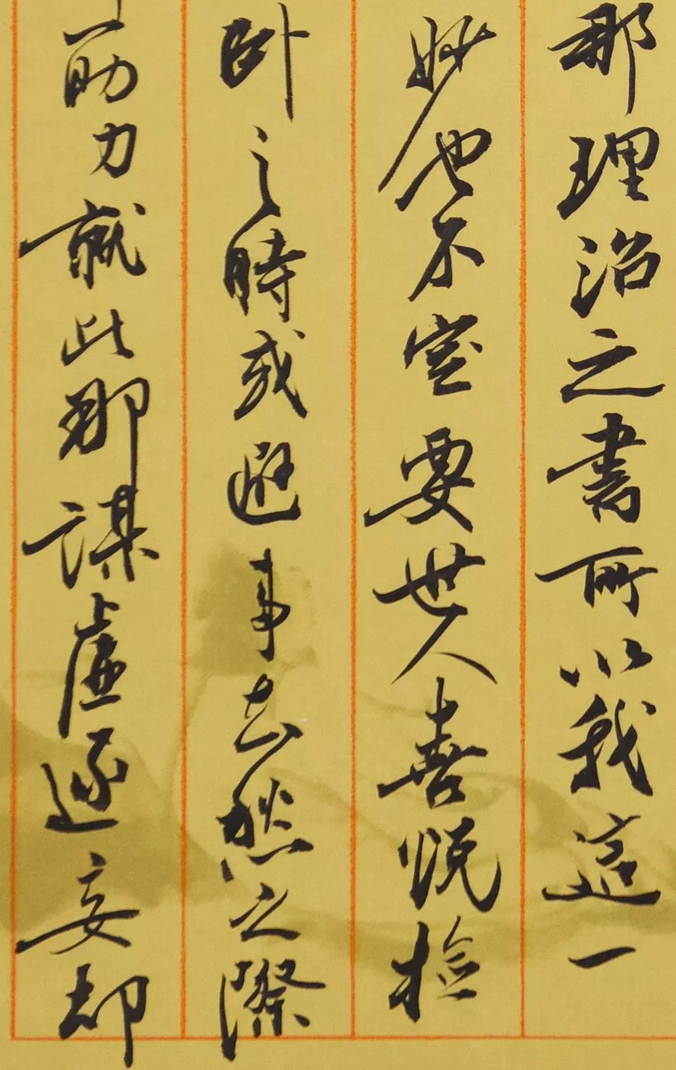 那理治之書所以我這一
妙也不定要世人喜悦檢
卧之時或避事去愁之際
筋力就此那謀虛逐妄却